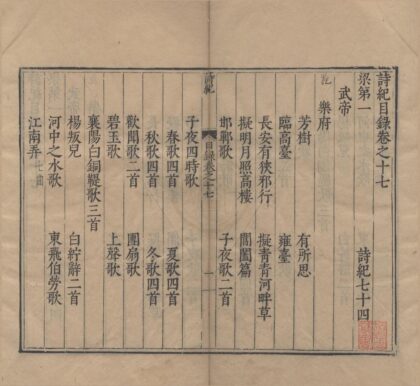 詩紀目錄卷之十七
梁第一 詩紀七十四
武帝
樂府
芳樹 有所思
臨高臺 雍臺
長安有狹邪行 擬青青河畔草
擬明月照高樓 閶闔篇
邯鄲歌 子夜歌二首
詩紀 目錄卷之十七 一
子夜四時歌
春歌四首 夏歌四首
秋歌四首 冬歌四首
歡聞歌二首 團扇歌
碧玉歌 上聲歌
襄陽白銅鞮歌三首
楊叛兒 白紵辭二首
河中之水歌 東飛伯勞歌
江南弄七曲